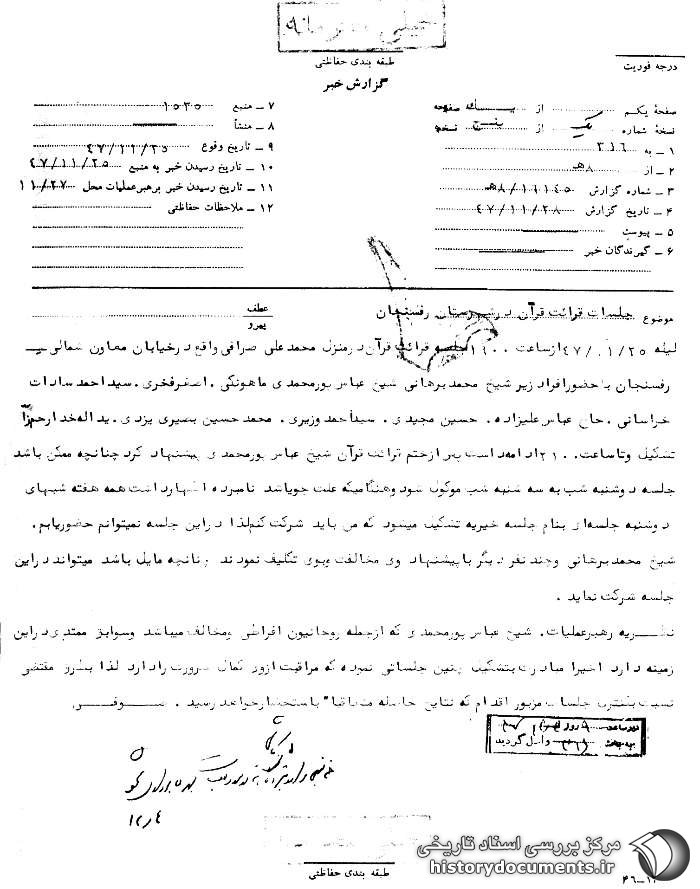 خیلی محرمانه
طبقه بندی حفاظتی
درجه فوریت
گزارش خبر
صفحهٔ یکم از یک صفحه
نسخهٔ شماره یک از پنج نسخه
۱ ـ به ۳۱۶
۲ ـ از ۸هـ
۳ ـ شماره گزارش
۴ ـ تاریخ گزارش ۴۷/۱۱/۲۸
۵ ـ پیوست
۶ ـ گیرندگان خبر
۷ ـ منبع ۱۵۳۵
۸ ـ منشأ
۹ ـ تاریخ وقوع ۴۷/۱۱/۲۵
۱۰ ـ تاریخ رسیدن خبر به منبع ۴۷/۱۱/۲۵
۱۱ ـ تاریخ رسیدن خبر برهبرعملیات محل ۱۱/۲۷
۱۲ ـ ملاحظات حفاظتی
موضوع جلسات قرائت قرآن در شهرستان رفسنجان
عطف
پیرو
لیله ازساعت جلسه قرائت قرآن درمنزل محمدعلی صرافی واقع درخیابان معاون شمالی
رفسنجان باحضورافراد زیر شیخ محمدبرهانی شیخ عباس پورمحمدی ماهونکی . اصغرفخری . سیداحمدسادات
خراسانی . حاج عباس علیزاده . حسین مجیدی . سیداحمد وزیری . محمدحسین بصیری یزدی . یداله
تشکیل وتاساعت ادامه داشت پس ازختم قرائت قرآن شیخ عباس پورمحمدی پیشنهاد کرد چنانچه ممکن باشد
جلسه دوشنبه شب به سه شنبه شب موکول شود وهنگامیکه علت جویاشد نامبرده اظهارداشت همه هفته شبهای
دوشنبه جلسه‌ای بنام جلسه خیریه تشکیل میشود که من باید شرکت کنم لذا دراین جلسه نمیتوانم حضوریابم .
شیخ محمدبرهانی وچند نفر دیگر باپیشنهاد وی مخالفت وبوی تکلیف نمودند چنانچه مایل باشد میتواند دراین
جلسه شرکت نماید .
نظریه رهبرعملیات . شیخ عباس پورمحمدی که ازجمله روحانیون افراطی ومخالف میباشد وسوابق ممتدی دراین
زمینه دارد اخیرا مبادرت بتشکیل چنین جلساتی نموده که مراقبت ازوی کمال ضرورت رادارد لذا بنظر مقتضی
نسبت جلسات مزبور اقدام که نتایج حاصله متعاقبا" باستحضارخواهد رسید .
واصل گردید
۱۲/۴
طبقه بندی حفاظتی
مرکز بررسی اسناد تاریخی
historydocuments.ir